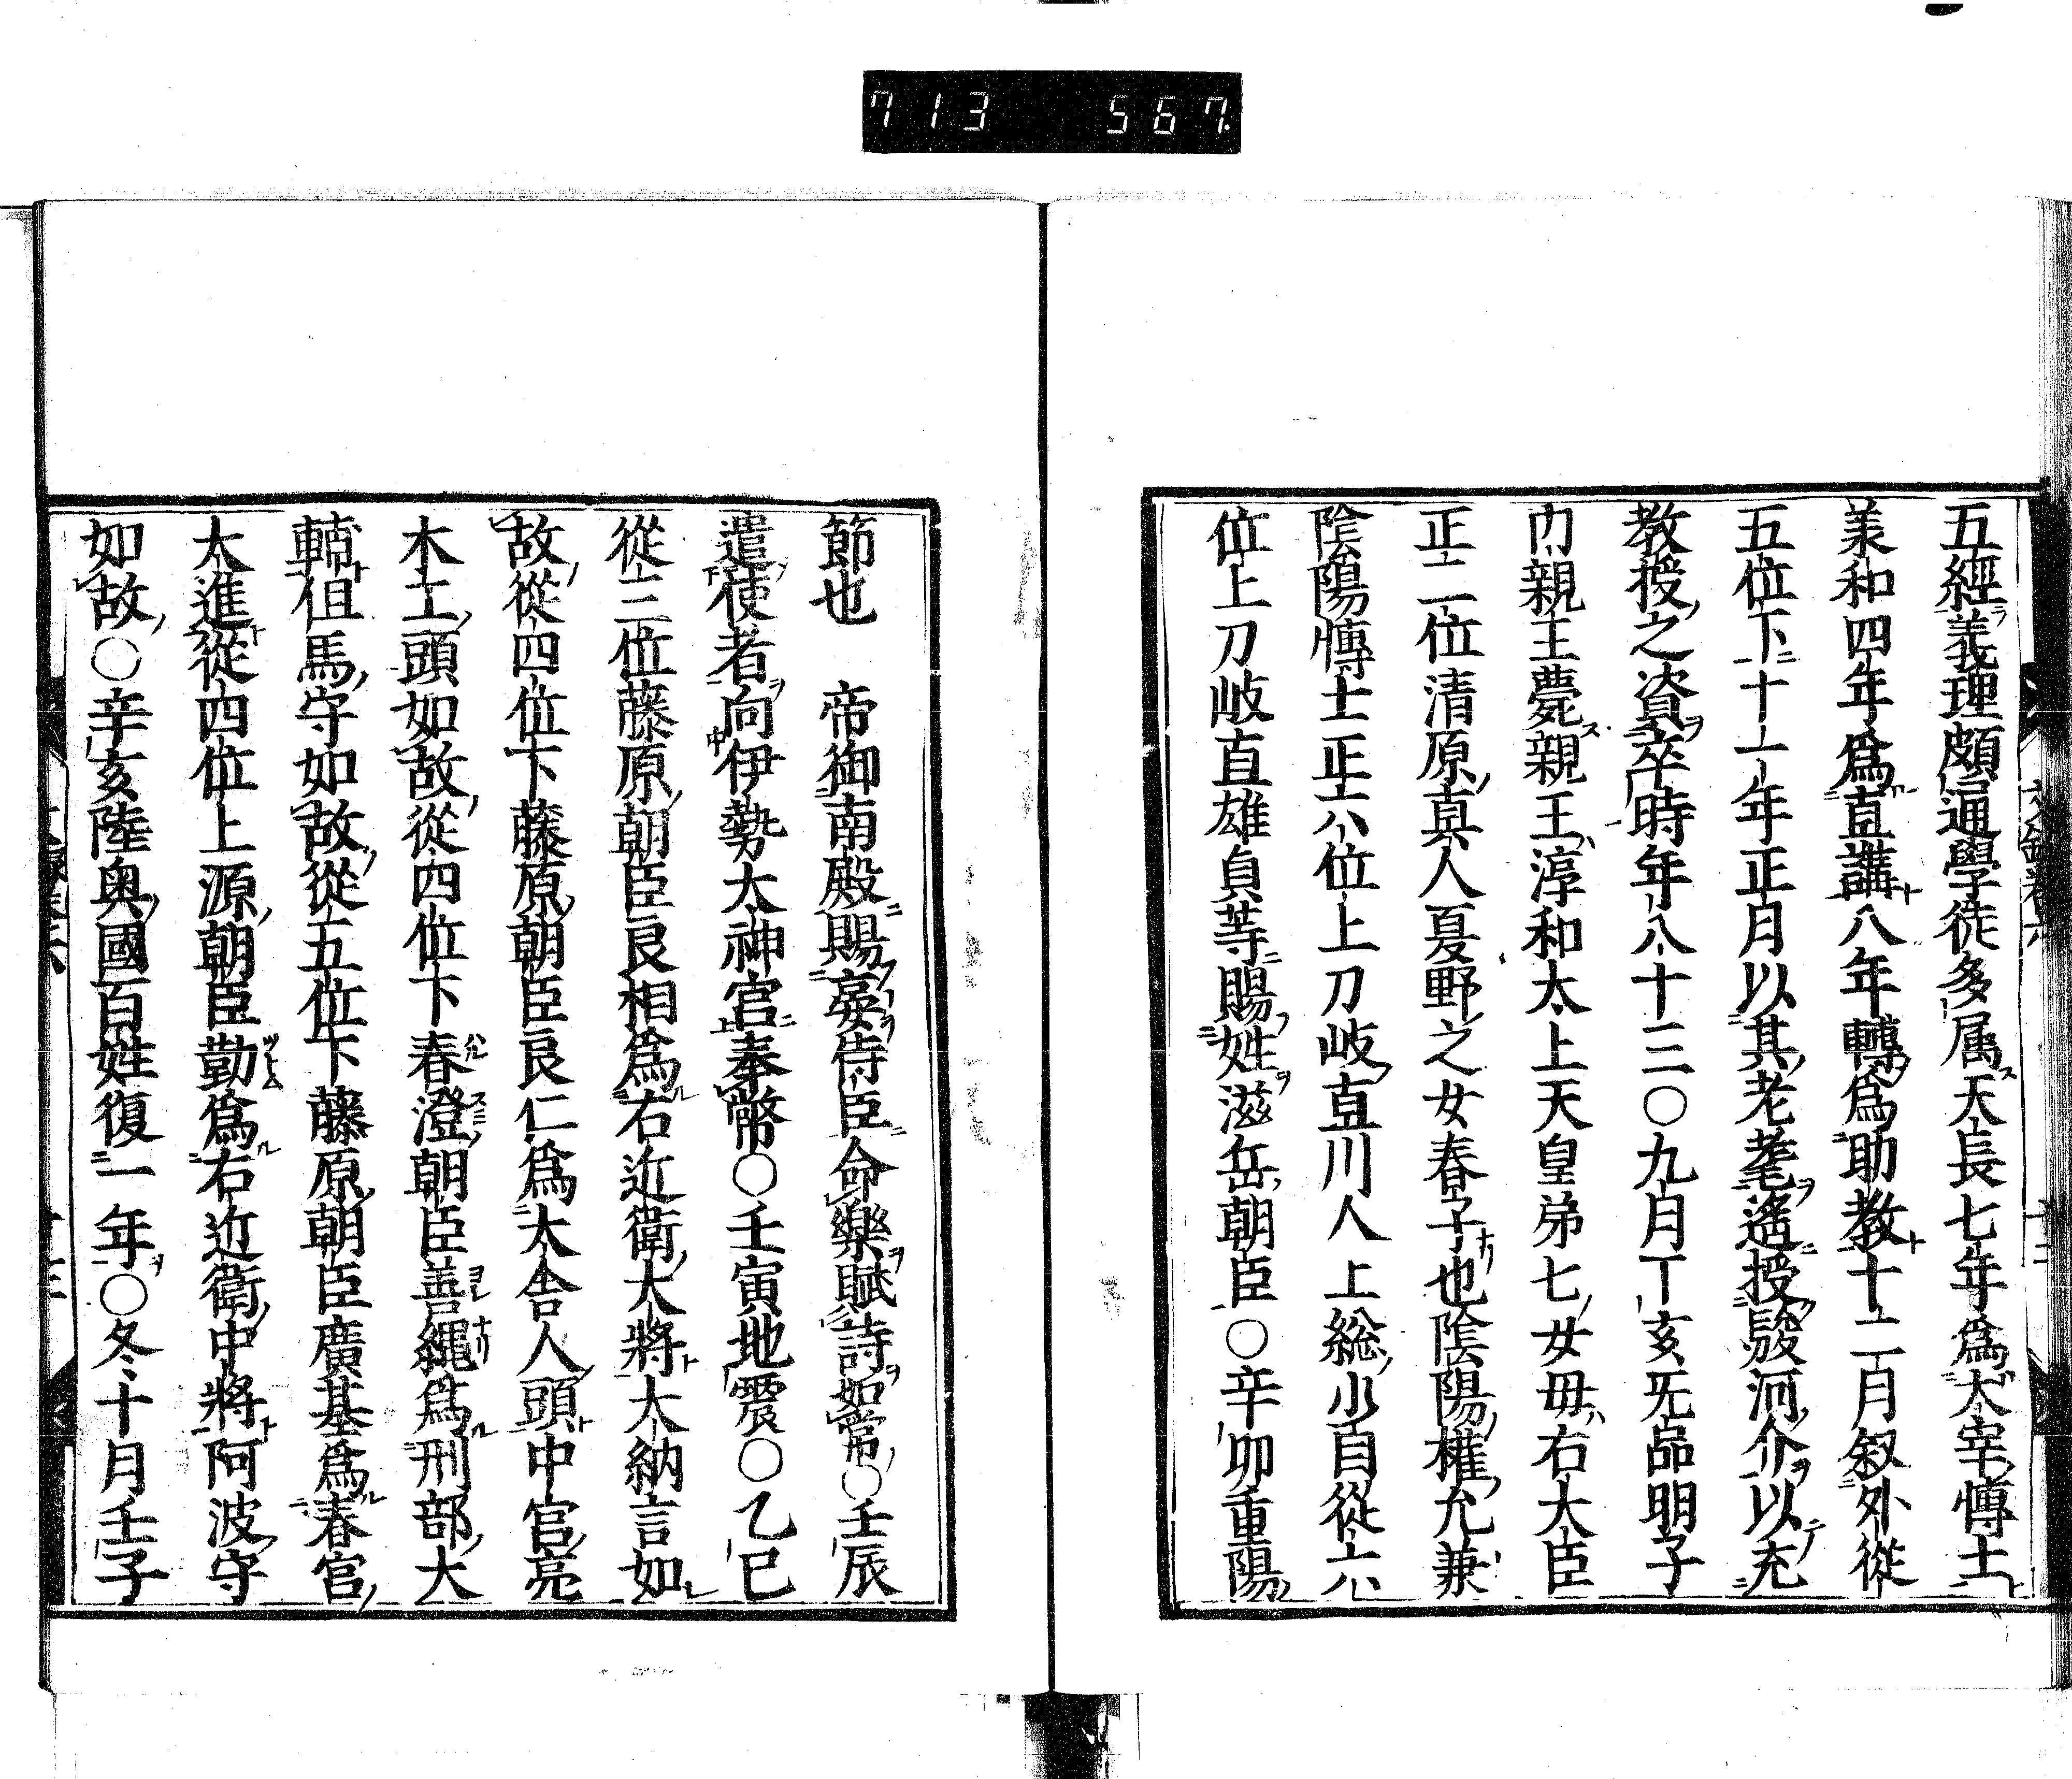 713 567
五經義理頗通學徒多属天長七年爲大宰博士
羙和四年爲直講八年轉爲助教十二月叙外從
五位下十一年正月以其老耄遙授駿河介以充
教授之資卒時年八十三〇九月丁亥无品明子
内親王薨親王淳和太上天皇弟七女母右大臣
正二位清原真人夏野之女春子也陰陽權允兼
陰陽博士正六位上刀岐直川人上総少目從六
位上刀岐直雄貞等賜姓滋岳朝臣〇辛卯重陽
節也 帝御南殿賜宴侍臣命樂賦詩如常〇壬辰
遣使者向伊勢大神宮奉幣〇壬寅地震〇乙巳
從三位藤原朝臣良相爲右近衛大將大納言如
故從四位下藤原朝臣良仁爲大舎人頭中宮亮
木工頭如故從四位下春澄朝臣善縄爲刑部大
輔但馬守如故從五位下藤原朝臣廣基爲春宮
大進從四位上源朝臣勤爲右近衛中將阿波守
如故〇辛亥陸奥國百姓復一年〇冬十月壬子